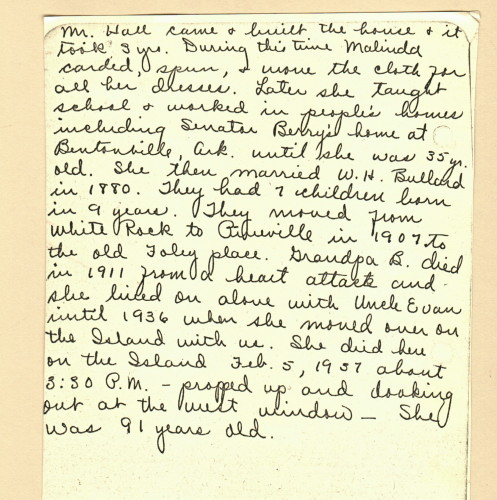 Mr. Hall came & built the house & it
took 3 yrs. During this time Malinda
carded, spun, & wove the cloth for
all her dresses. Later she taught
school & worked in people's homes
including Senator Berry's home at
Bentonville, Ark. until she was 35 yr.
old. She then married W. H. Bullard
in 1880. They had 7 children born
in 9 years. They moved from
White Rock to Pineville in 1907 to
the old Foley place. Grandpa B. died
in 1911 from a heart attack and
she lived on alone with Uncle Evan
until 1936 when she moved over on
the Island with us. She died here
on the Island Feb. 5, 1937 about
3:30 P.M. – propped up and looking
out at the west window – She
was 91 years old.